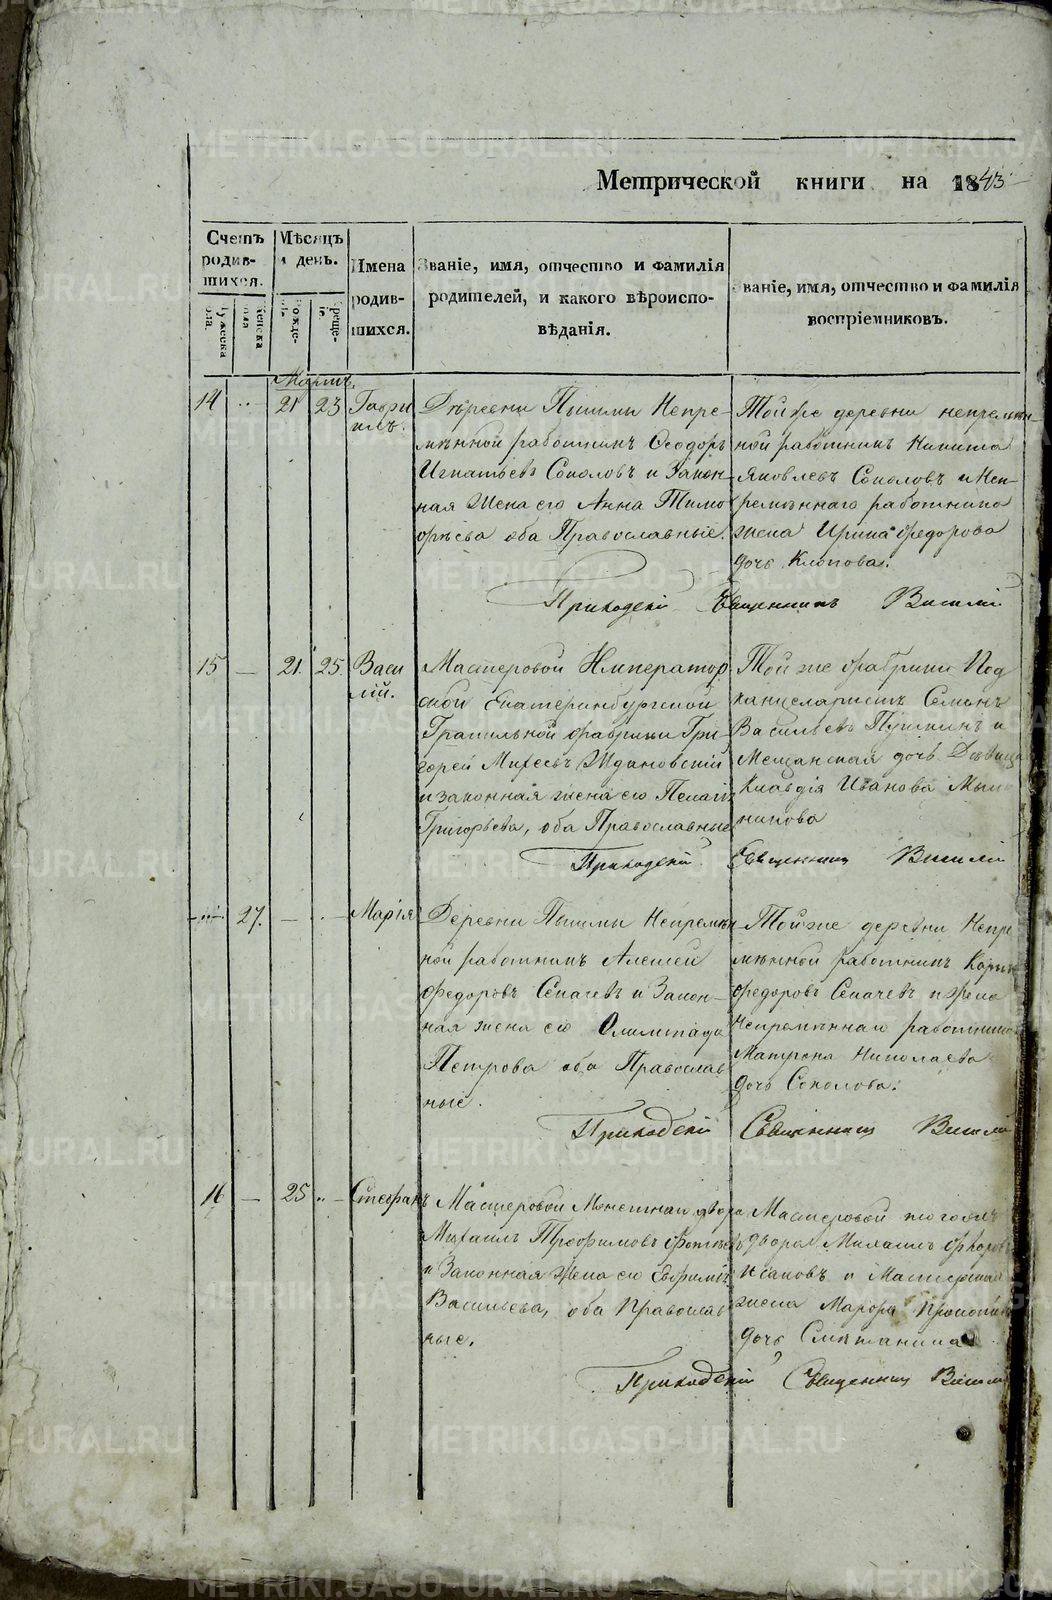 Метрической книги на 1843
Счетъ родив-шихся.
Мѣсяцъ и день.
Имена родив-шихся.
Званіе, имя, отчество и фамилія
родителей, и какого вѣроиспо-
вѣданія.
Званіе, имя, отчество и фамилія
воспріемниковъ.
Мартъ.
14 21 23 Гаври
илъ.
Деревни Пышмы Непре-
мѣнной работникъ Ѳеодоръ
Игнатьевъ Соколовъ и Закон-
ная Жена его Анна Тимо
фѣева оба Православные.
Той же деревни непремѣн-
ной работникъ Никита
Яковлевъ Соколовъ и Неп-
ремѣннаго работника
жена Ирина Федорова
дочь Клопова.
Приходскій Священникъ Василій
15 — 21. 25. Васи
лій.
Мастеровой Император
ской Екатеринбургской
Гранильной фабрики Гри-
горей Михеевъ Ждановскій
и законная жена его Пелагія
Григорьева, оба Православные
Той же фабрики Под
канцеляристъ Семенъ
Васильевъ Пушкинъ и
Мещанская дочь Дѣвица
Клавдія Иванова
никова
Приходскій Священникъ Василій
27. — Марія
Деревни Пышмы Непремѣн-
ной работникъ Алексей
Федоровъ Сапачевъ и Закон-
ная жена его Олимпіада
Петрова оба Православ
ные.
Той же деревни Непре
мѣнной работникъ
Федоровъ Сапачевъ и жена
Непремѣннаго работника
Матрена Николаева
дочь Соколова.
Приходскій Священникъ Василій
16 — 25 Стефанъ
Мастеровой Монетнаго двора
Михаилъ Трофимовъ
и Законная Жена его Евфимія
Васильева, оба Православ
ные.
Мастеровой того же
двора Михаилъ Федоровъ
Исаковъ и Мастерская
жена Марфа
дочь Сметанина
Приходскій Священникъ Василій
METRIKI.GASO-URAL.RU